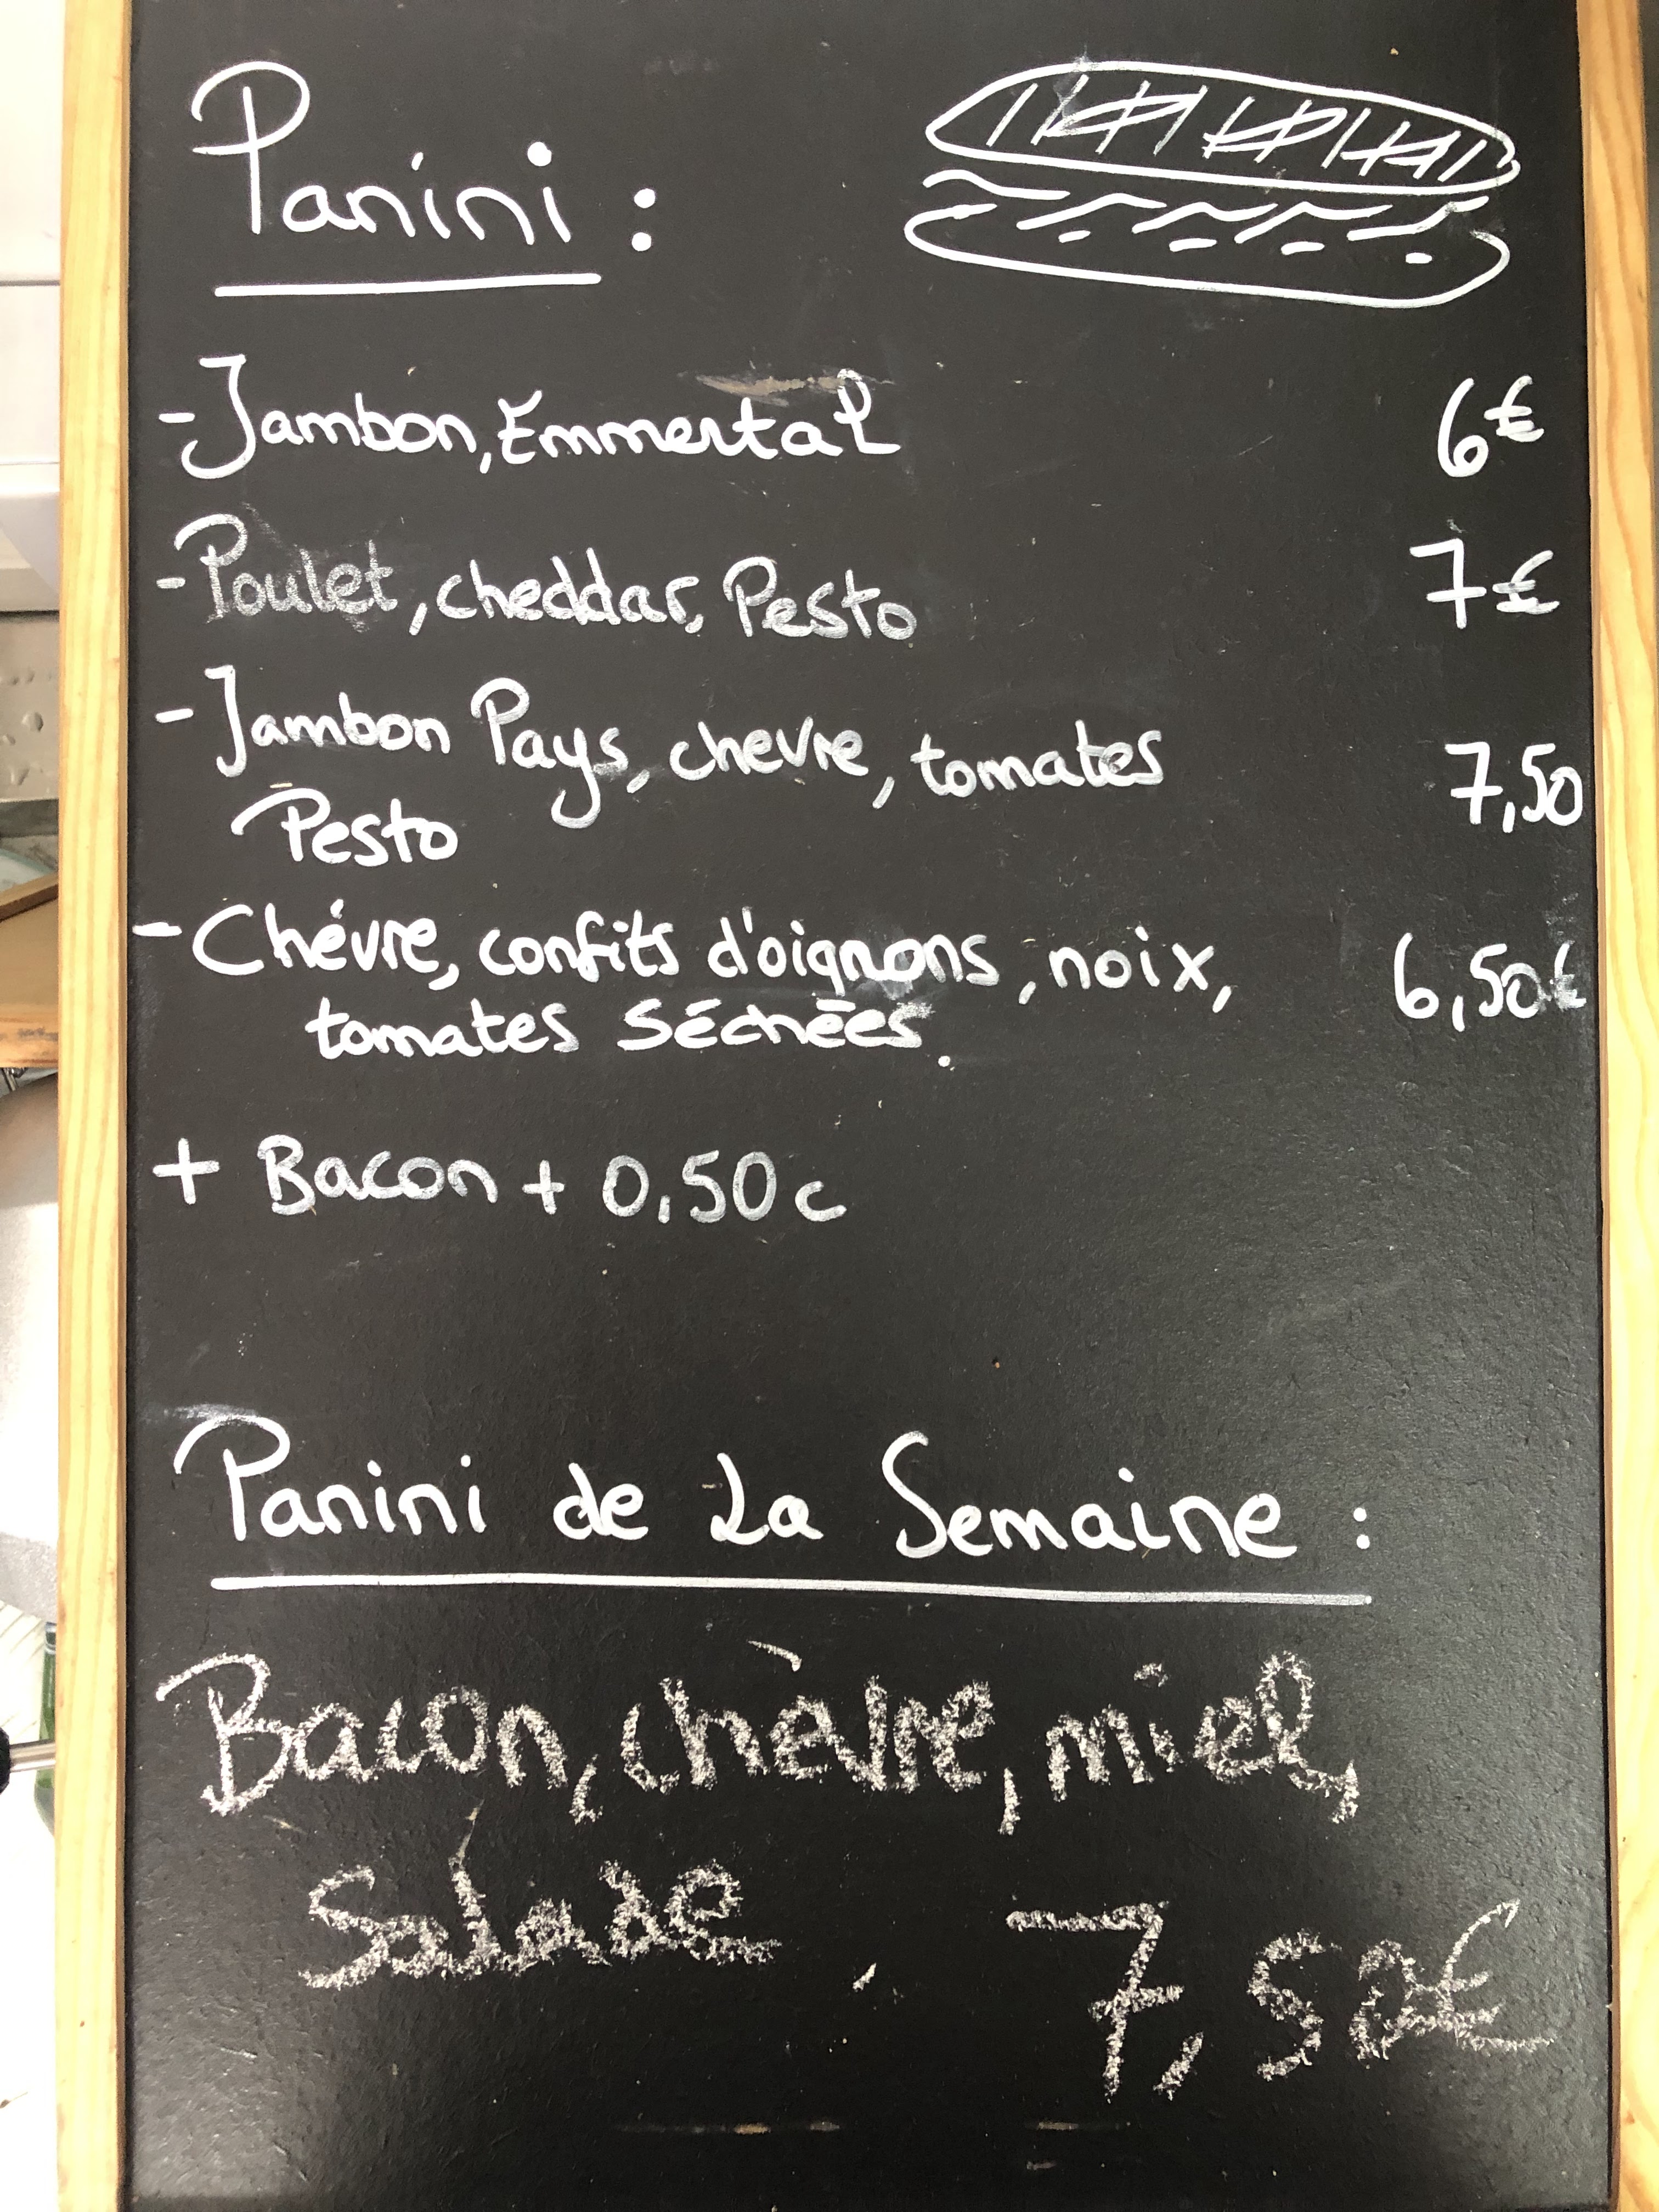 Panini :
- Jambon, Emmental 6€
- Poulet, cheddar, Pesto 7€
- Jambon Pays, chevre, tomates 7,50
Pesto
- Chévre, confits d'oignons, noix, 6,50€
tomates séchées.
+ Bacon + 0,50c
Panini de La Semaine :
Bacon, chèvre, miel,
Salade. 7,50€